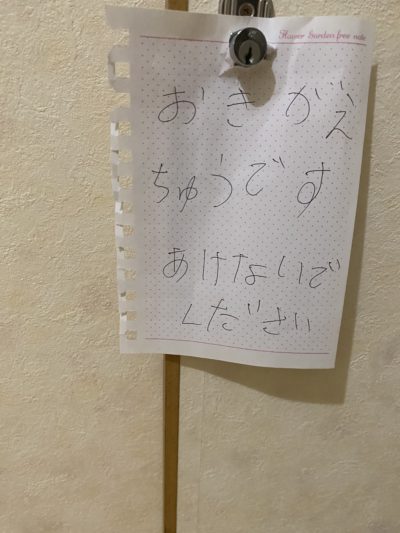 Flower Garden free note
おきがえ
ちゅうです
あけないで
ください